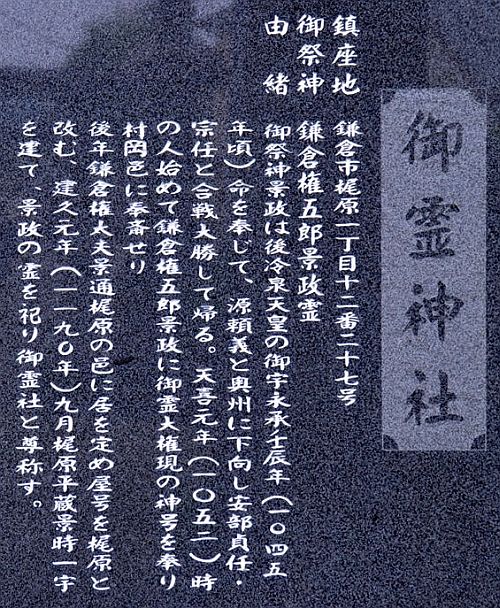 御霊神社
鎮座地 鎌倉市梶原一丁目十二番二十七号
御祭神 鎌倉権五郎景政霊
由緒 御祭神景政は後冷泉天皇の御宇永承壬辰年(一〇四五
年頃)命を奉じて、源頼義と奥州に下向し安部貞任・
宗任と合戦大勝して帰る。天喜元年(一〇五二)時
の人始めて鎌倉権五郎景政に御霊大権現の神号を奉り
村岡邑に奉斎せり
後年鎌倉権大夫景通梶原の邑に居を定め屋号を梶原と
改む、建久元年(一一九〇年)九月梶原平蔵景時一宇
を建て、景政の霊を祀り御霊社と尊称す。